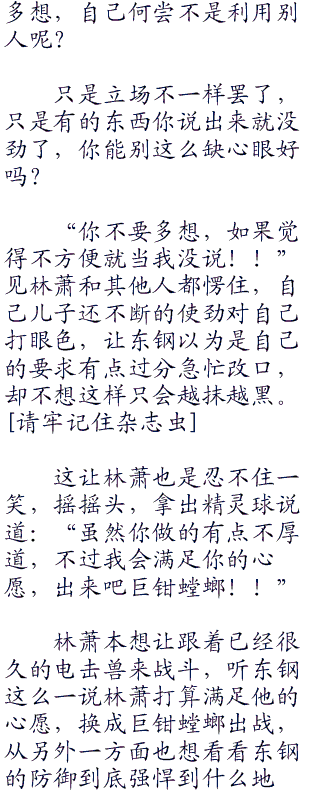 多想，自己何尝不是利用别
人呢？
只是立场不一样罢了，
只是有的东西你说出来就没
劲了，你能别这么缺心眼好
吗？
“你不要多想，如果觉
得不方便就当我没说！！”
见林萧和其他人都愣住，自
己儿子还不断的使劲对自己
打眼色，让东钢以为是自己
的要求有点过分急忙改口，
却不想这样只会越抹越黑。
[请牢记住杂志虫]
这让林萧也是忍不住一
笑，摇摇头，拿出精灵球说
道：“虽然你做的有点不厚
道，不过我会满足你的心
愿，出来吧巨钳螳螂！！”
林萧本想让跟着已经很
久的电击兽来战斗，听东钢
这么一说林萧打算满足他的
心愿，换成巨钳螳螂出战，
从另外一方面也想看看东钢
的防御到底强悍到什么地